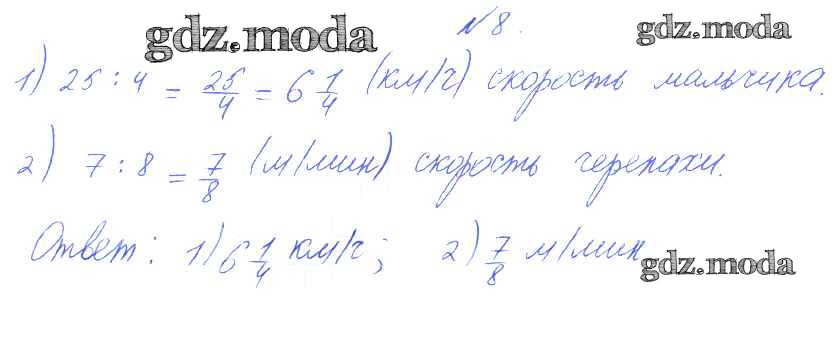 gdz.moda №8. gdz.moda
1) 25 : 4 = 25/4 = 6 1/4 (км/ч) скорость мальчика.
2) 7 : 8 = 7/8 (м/мин) скорость черепахи.
Ответ: 1) 6 1/4 км/ч; 2) 7/8 м/мин
gdz.moda